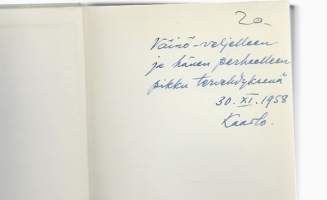 20.-
Väinö-veljelleen
ja hänen perheelleen
pikku tervehdyksenä
30. XI. 1958
Kaarlo.